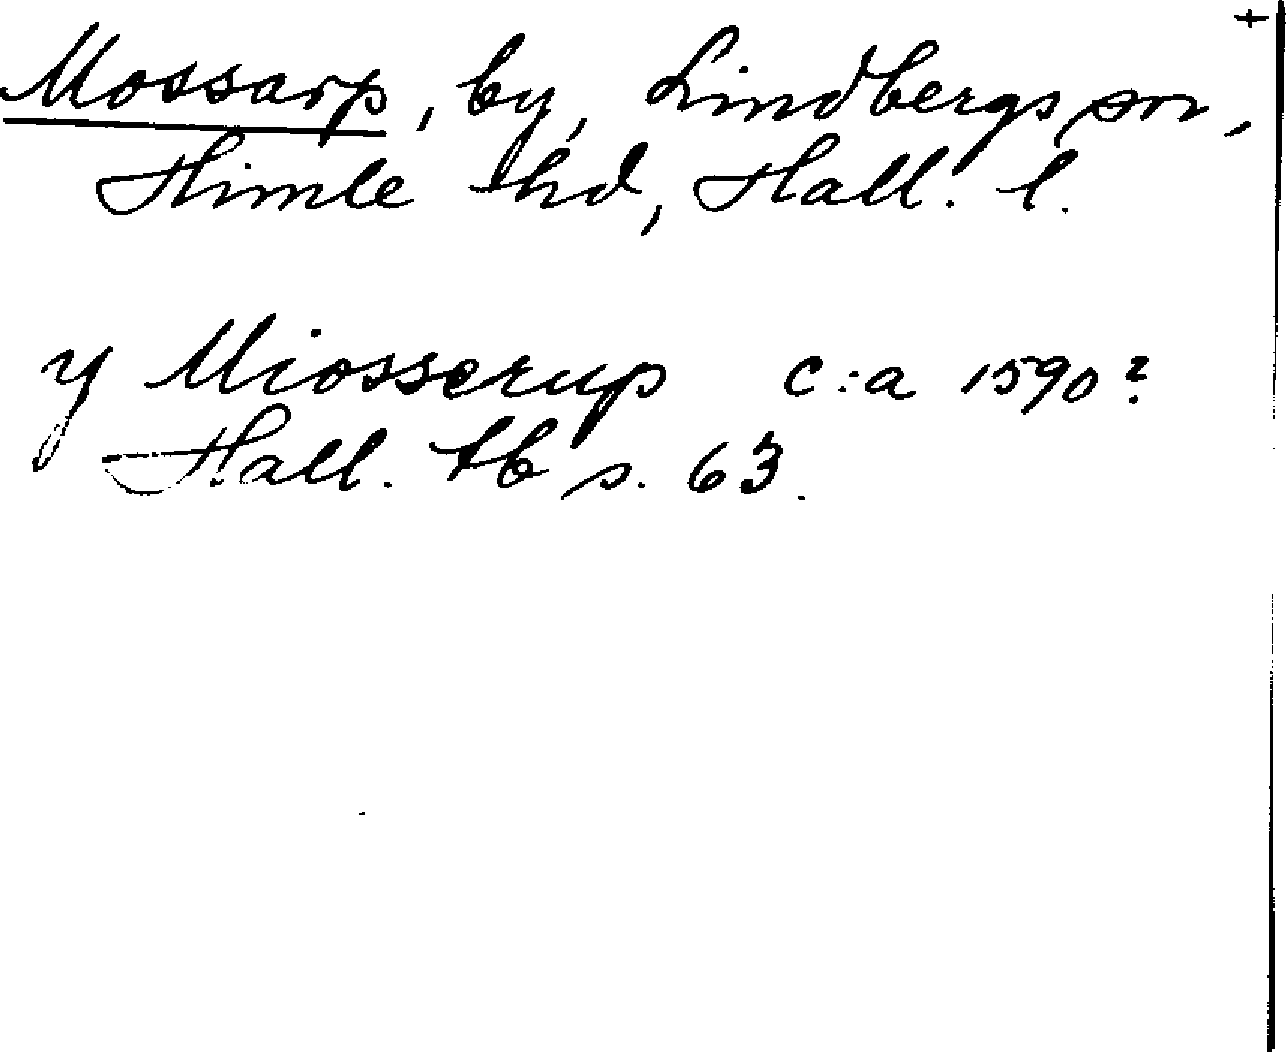 +
Mossarp, by, Lindbergs sn,
Himle hd, Hall. l.
y Miosserup c:a 1590?
Hall. tb s. 63.